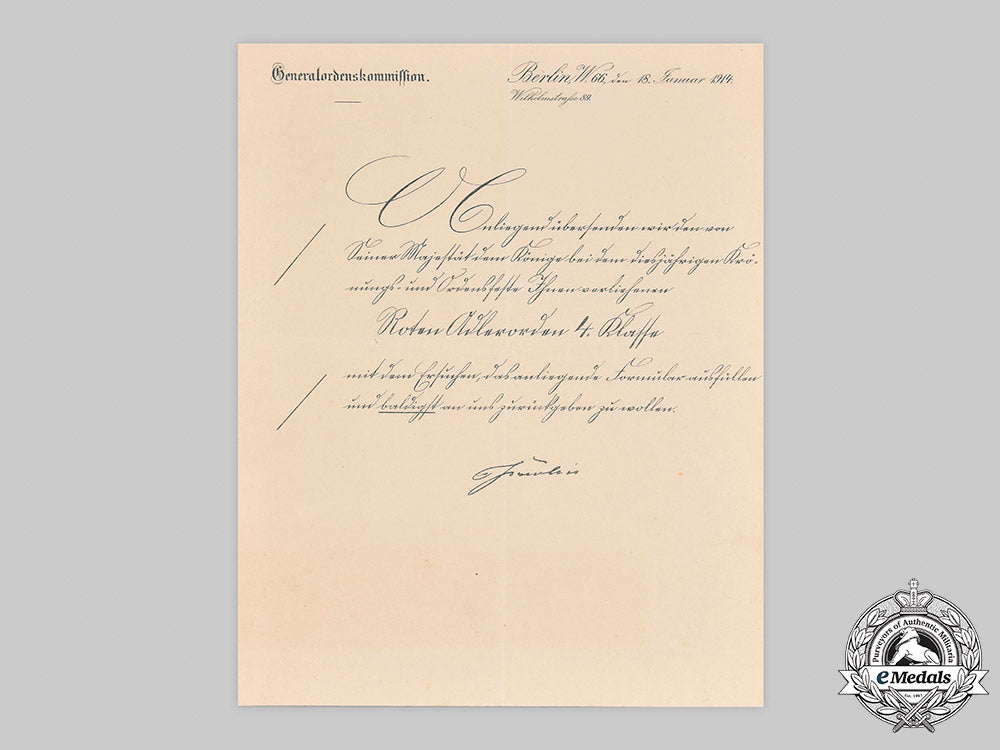 Generalordenskommission.
Berlin, W. 66, den 18. Januar 1914.
Wilhelmstraße 89.
Anliegend übersenden wir den von
Seiner Majestät dem Könige bei dem diesjährigen Krö-
nungs- und Ordensfeste Ihnen verliehenen
Roten Adlerorden 4. Klasse
mit dem Ersuchen, das anliegende Formular ausfüllen
und baldigst an uns zurückgeben zu wollen.
Purveyors of Authentic Militaria
eMedals